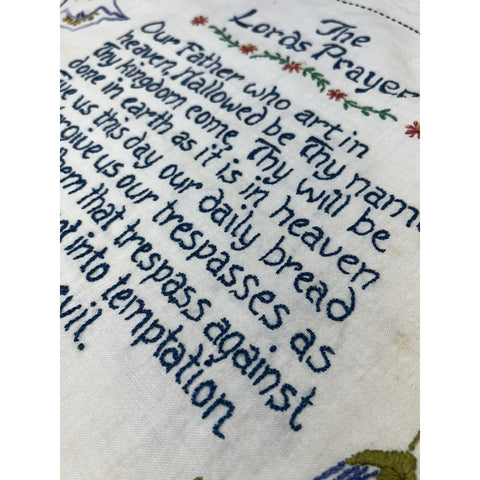 The
Lords Prayer
Our Father who art in
heaven, Hallowed be Thy name
Thy kingdom come, Thy will be
done in earth as it is in heaven
us this day our daily bread
us our trespasses as
that trespass against
into temptation